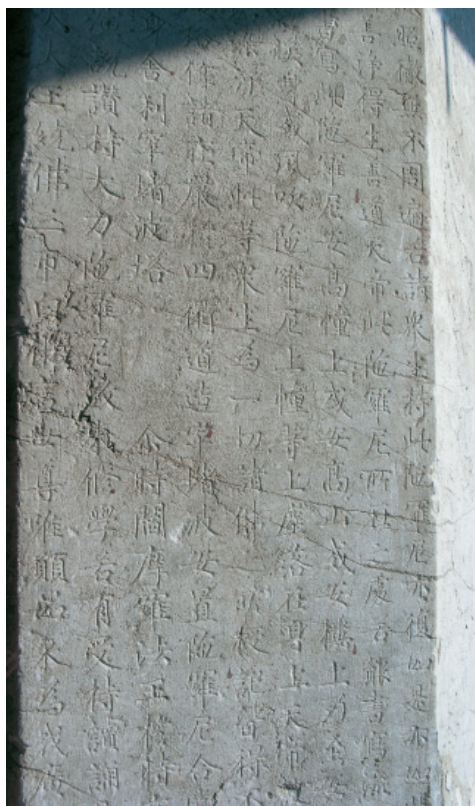 照徹無不周遍若諸眾生持此陀羅尼亦復如是亦如
善淨得生善道天帝此陀羅尼所在之處若能書寫流
書寫此陀羅尼安高幢上或安高山或安樓上乃至安
風吹陀羅尼上幢等上塵落在身上天帝
天帝此等眾生為一切諸佛之所授記皆得
作諸莊嚴於四衢道造窣堵波安置陀羅尼合
身舍利窣堵波塔 尒時閻摩羅法王於時
讚持大力陀羅尼故來修學若有受持讀誦
天王繞佛三帀白佛言世尊唯願如來為我廣